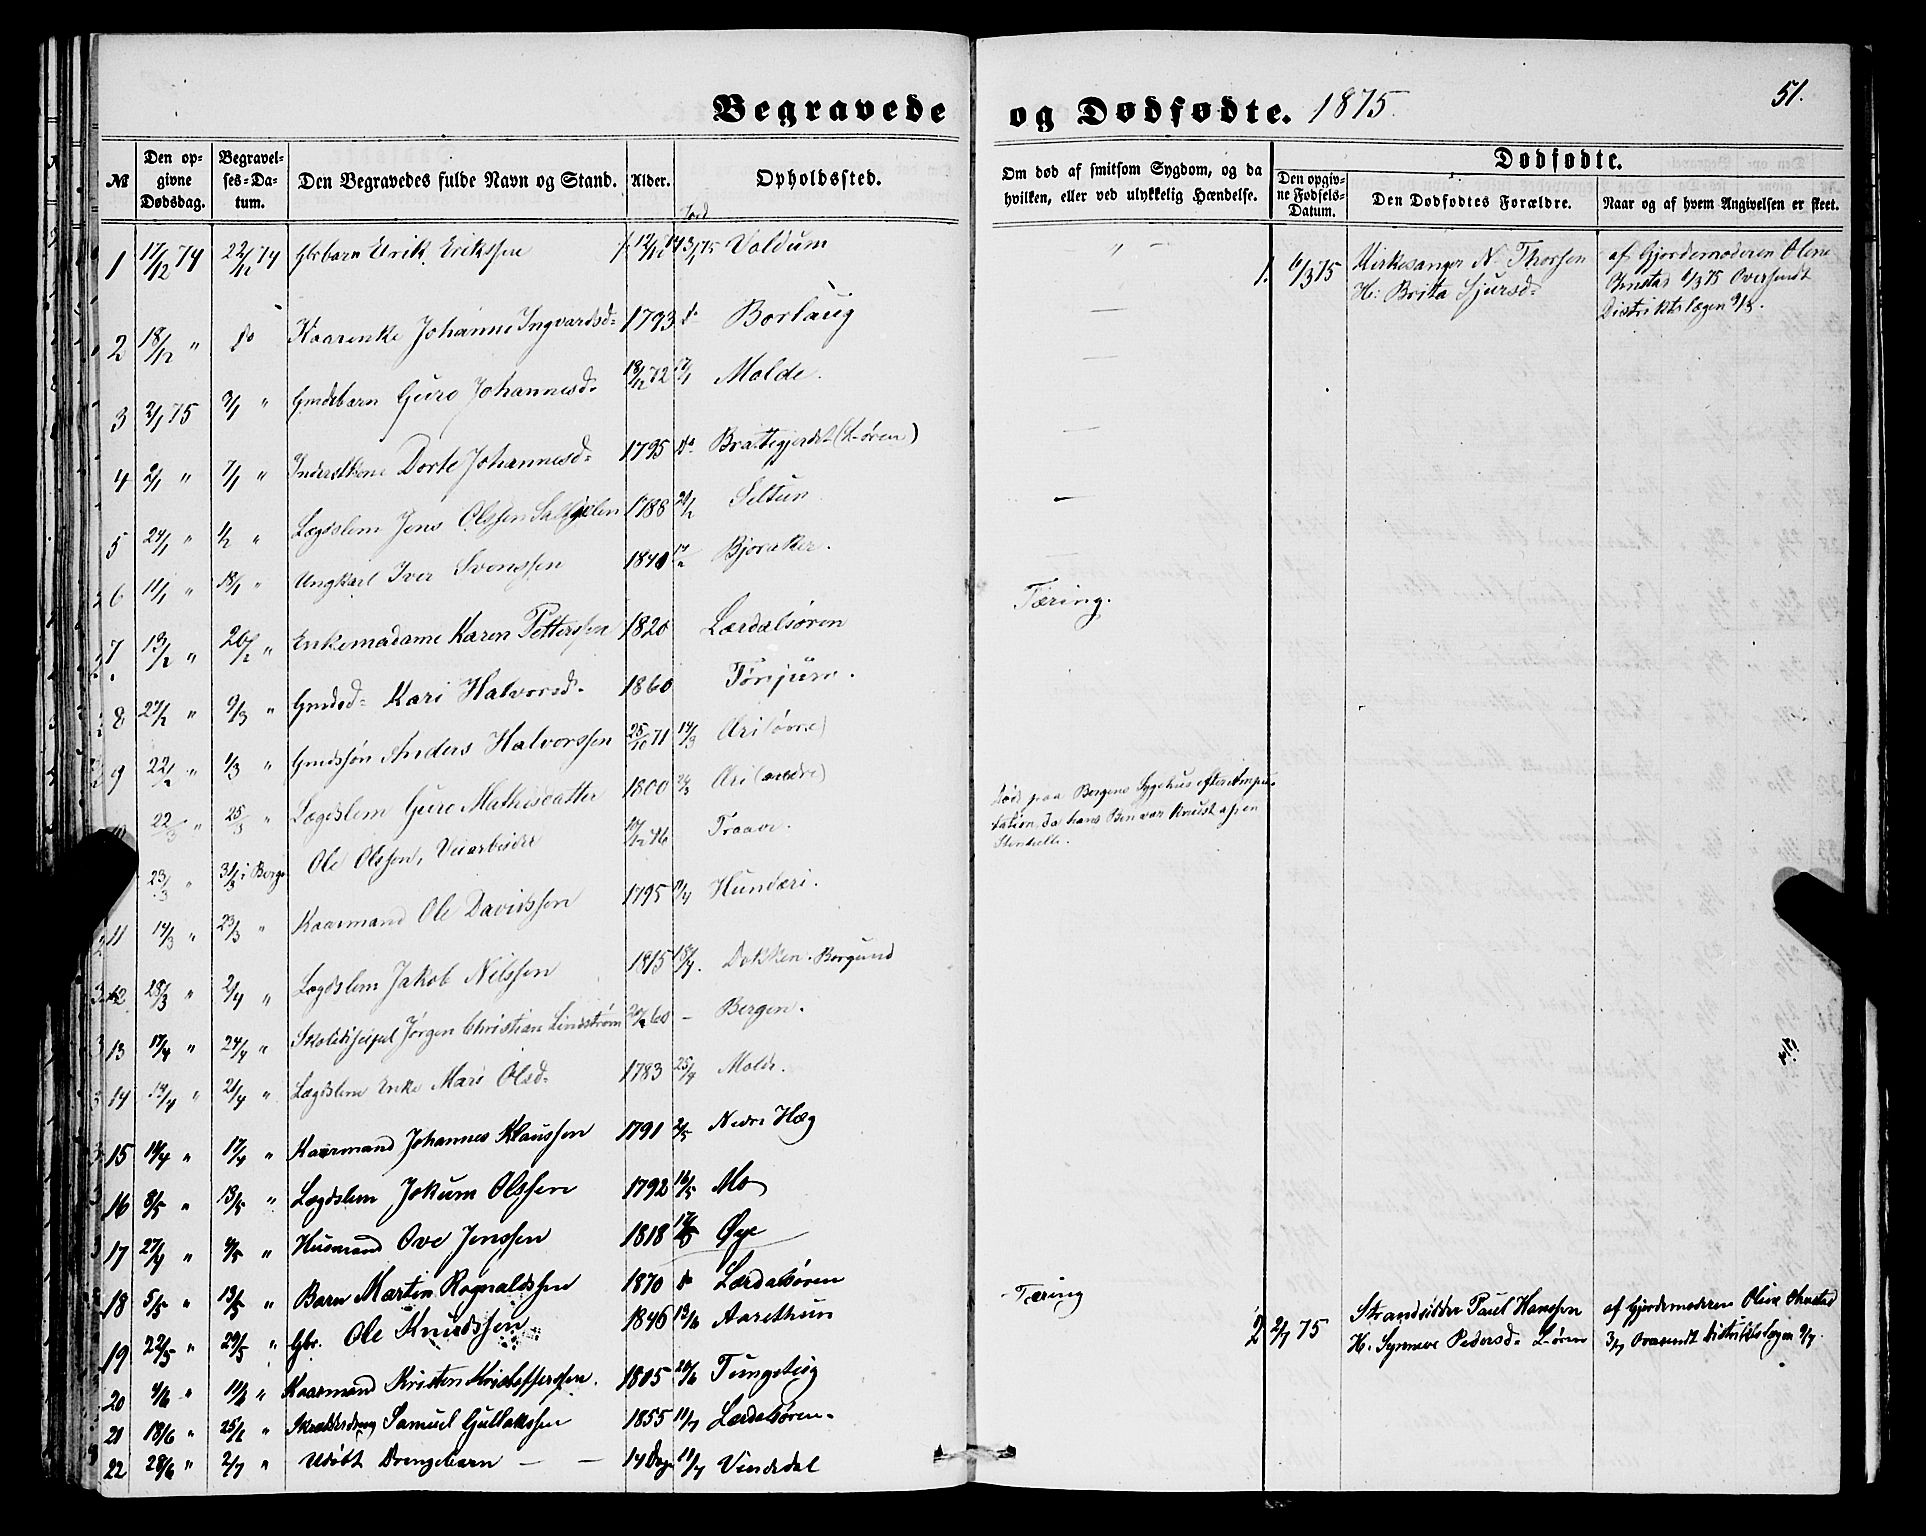 Begravede og Dødfødte. 1875. 51.
№ Den opgivne Dødsdag. Begravelses-Datum. Den Begravedes fulde Navn og Stand. Alder. Opholdssted. Om død af smitsom Sygdom, og da hvilken, eller ved ulykkelig Hændelse. Dødfødte.
Den opgivne Fødsels-Datum. Den Dødfødtes Forældre. Naar og af hvem Angivelsen er skeet.
Jord
1 17/12 74 22/12 74 Gbrbarn Erik Erikssen 3/1 75 Voldum " —
1. 6/3 75 Kirkesanger N. Thorsen H: Brita Sjursd. af Gjordemoderen Oline Ornstad 6/3 75 Oversendt Distriktslægen 9/3.
2 18/12 " do Kaarenke Johanne Ingvardsd. 1793 do Borlaug —
3 2/1 75 7/1 " Gmdsbarn Guro Johannesd. 18/12 72 17/1 Molde. —
4 2/1 " 7/1 " Inderstkone Dorte Johannesd. 1795 Do Brattegjerdet (L-øren) —
5 24/1 " 1/2 " Lægdslem Jens Olssen 1788 Seltun —
6 11/1 " 18/1 " Ungkarl Iver Svenssen 1840 Bjøraker. —
7 13/2 " 20/2 " Enkemadame Karen Petterssen 1820 Lærdalsøren Tæring.
8 27/2 " 9/3 " Gmdsd. Kari Halvorsd. 1860 Tønjum.
9 22/2 " 1/3 " Gmdssøn Anders Halvorssen 25/10 71 14/3 Æri (øvre)
10 22/3 " 25/3 " Lægdslem Guro Mathisdatter 1800 Æri (nedre)
23/3 " 31/3 i Berg. Ole Olssen, Veiarbeider 46 Traave. Død paa Bergens Sygehus efter Ampu-
tation, da hans Ben var knust af en
Stenhelle.
11 14/3 " 23/3 " Kaarmand Ole Davidssen 1795 11/4 Hunderi.
12 28/3 " 2/4 " Lægdslem Jakob Nilssen 1815 18/4. Dokken. Borgund
13 17/4 " 24/4 " Skolediscipel Jørgen Christian Lindstrøm 60 — Bergen.
14 14/4 " 21/4 " Lægdslem Enke Mari Olsd. 1783 25/4 Molde.
15 10/4 " 17/4 " Kaarmand Johannes Klaussen 1791 2/5 Nedre Hæg
16 8/5 " 13/5 " Lægdslem Jokum Olssen 1792 16/5 Mo
17 27/4 " 4/5 " Husmand Ove Jenssen 1818 Øye
18 5/5 " 13/5 " Barn Martin Rognaldssen 1870 do Lærdalsøren Tæring
19 22/5 " 29/5 " Gbr. Ole Knudssen 1846 13/6 Aarethun
2 2/7 75 Strandsidder Paul Hanssen H. Synneve Pedersd. L-øren af Gjordemoderen Oline Ornstad 3/7 Oversendt Distriktslægen 9/7.
20 4/6 " 11/6 " Kaarmand Kristen Kristofferssen. 1805 20/6 Tungeteig
21 18/6 " 25/6 " Skrædderdreng Samuel Gullakssen 1855 11/7 Lærdalsøren.
22 28/6 " 2/7 " Udøbt Drengebarn — — 14 Dage 11/7 Vindedal